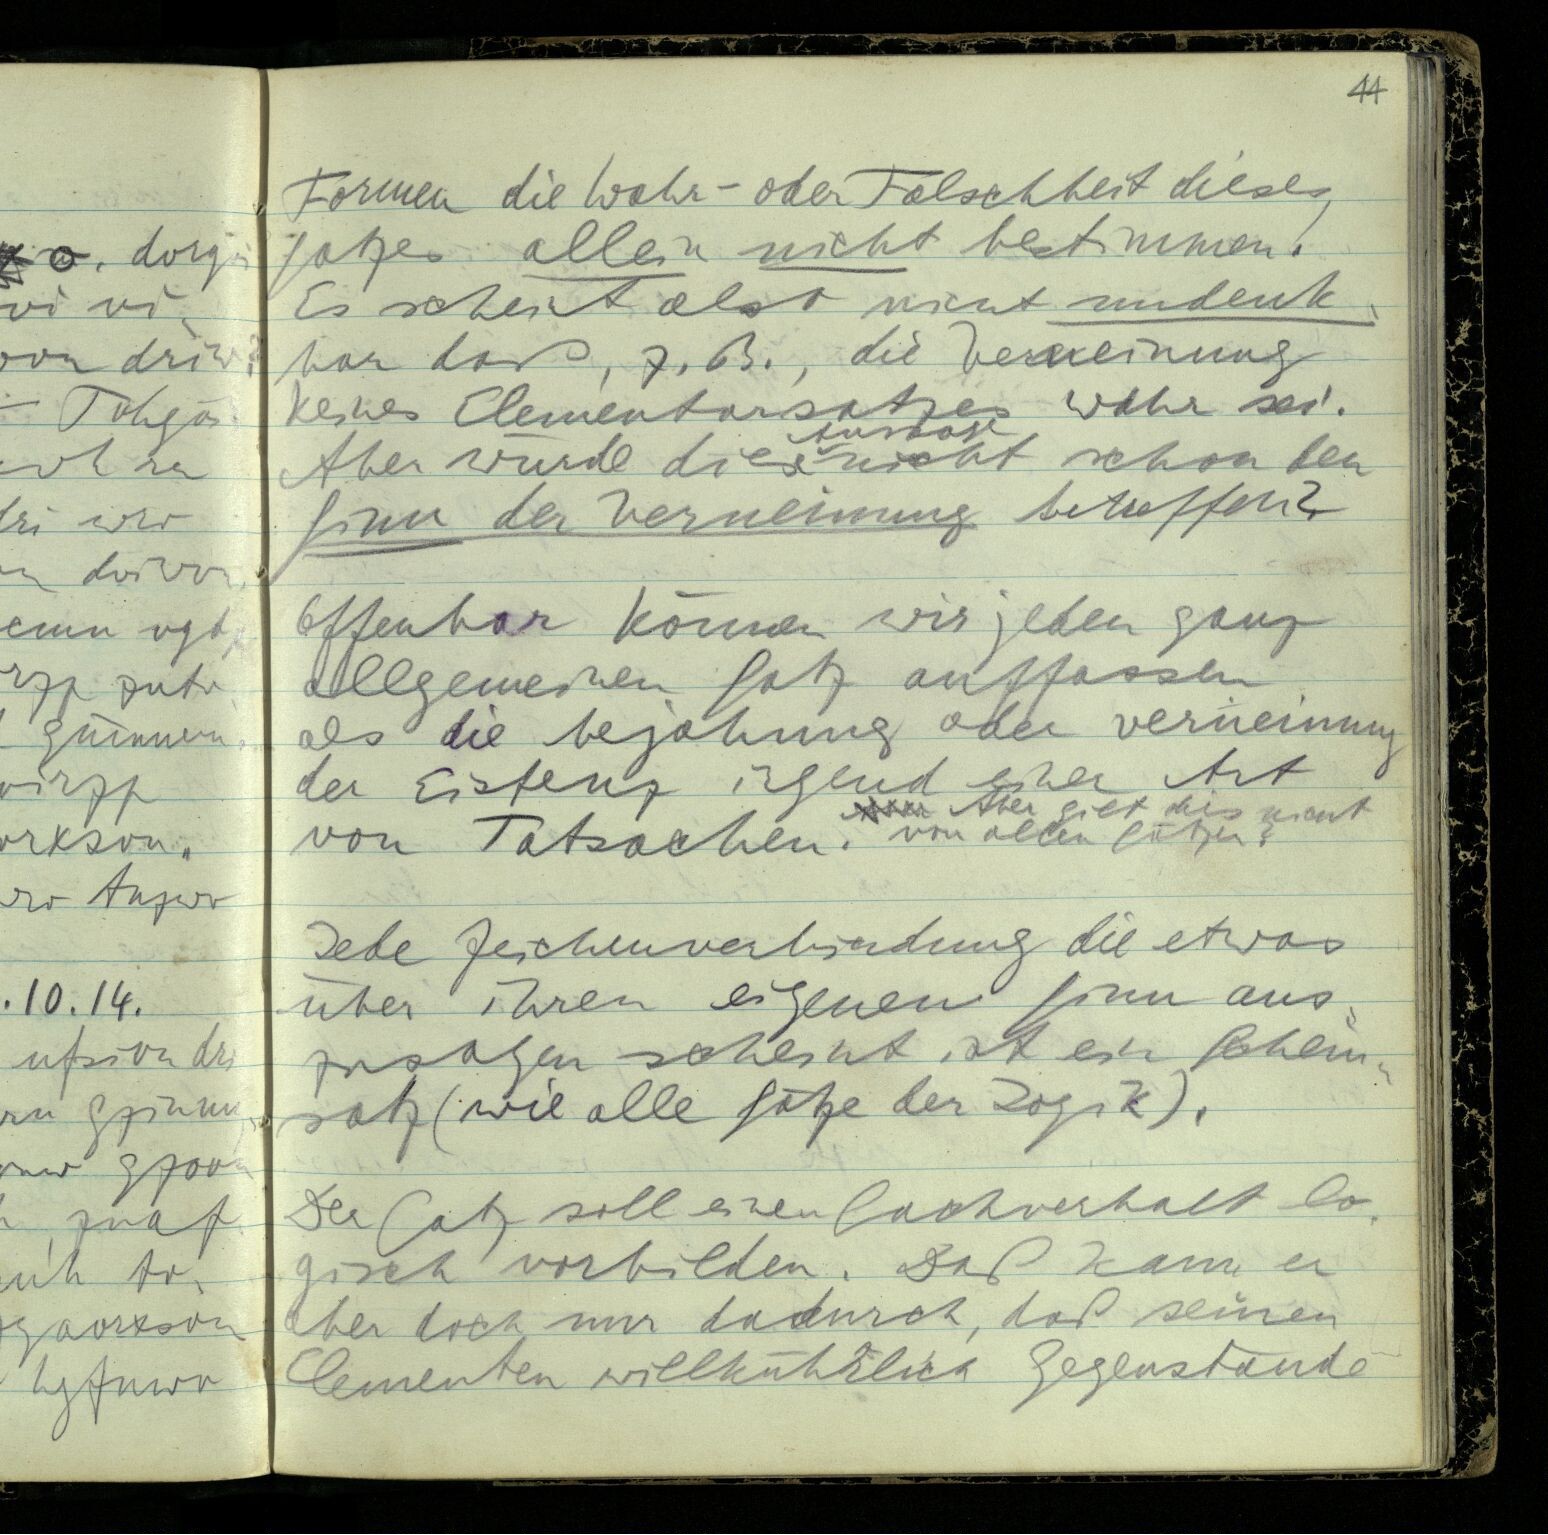 44
Formen die Wahr- oder Falschheit dieses
Satzes allein nicht bestimmen.
Es scheint also nicht undenk-
bar daß, z. B., die Verneinung
keines Elementarsatzes wahr sei.
Aber würde diese Aussage nicht schon den
Sinn der Verneinung betreffen?
Offenbar können wir jeden ganz
allgemeinen Satz auffassen
als die bejahung oder verneinung
der Existenz irgend einer Art
von Tatsachen. Aber gilt dies nicht
von allen Sätzen?
Jede Zeichenverbindung die etwas
über ihren eigenen Sinn aus-
zusagen scheint ist ein Schein-
satz (wie alle Sätze der Logik).
Der Satz soll einen Sachverhalt lo-
gisch vorbilden. Das kann er
aber doch nur dadurch, daß seinen
Elementen willkührlich Gegenstände
o. dorgi
vi vi-
von driw?
Tohgoi
dri wro
güinnern.
orkson.
wro
.10.14.